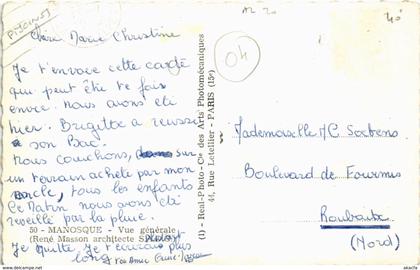 Chère Marie Christine
Je t'envoie cette carte
qui peut être te fais
envie. Nous avons été
hier. Brigitte a réussi
a son Bac.
Nous couchons, sur
un terrain acheté par mon
oncle, tous les enfants
Ce Matin nous avons été
reveillé par la pluie.
50 - MANOSQUE - Vue générale
(René Masson architecte
Je quitte Je t'écrirais plus
long
(1) - Real-Photo - Cie des Arts Photomécaniques
44, Rue Letellier - PARIS (15e)
04
40
Mademoiselle M.C.
Boulevard de Fourmies
Roubaix
(Nord)
www.akpool.de